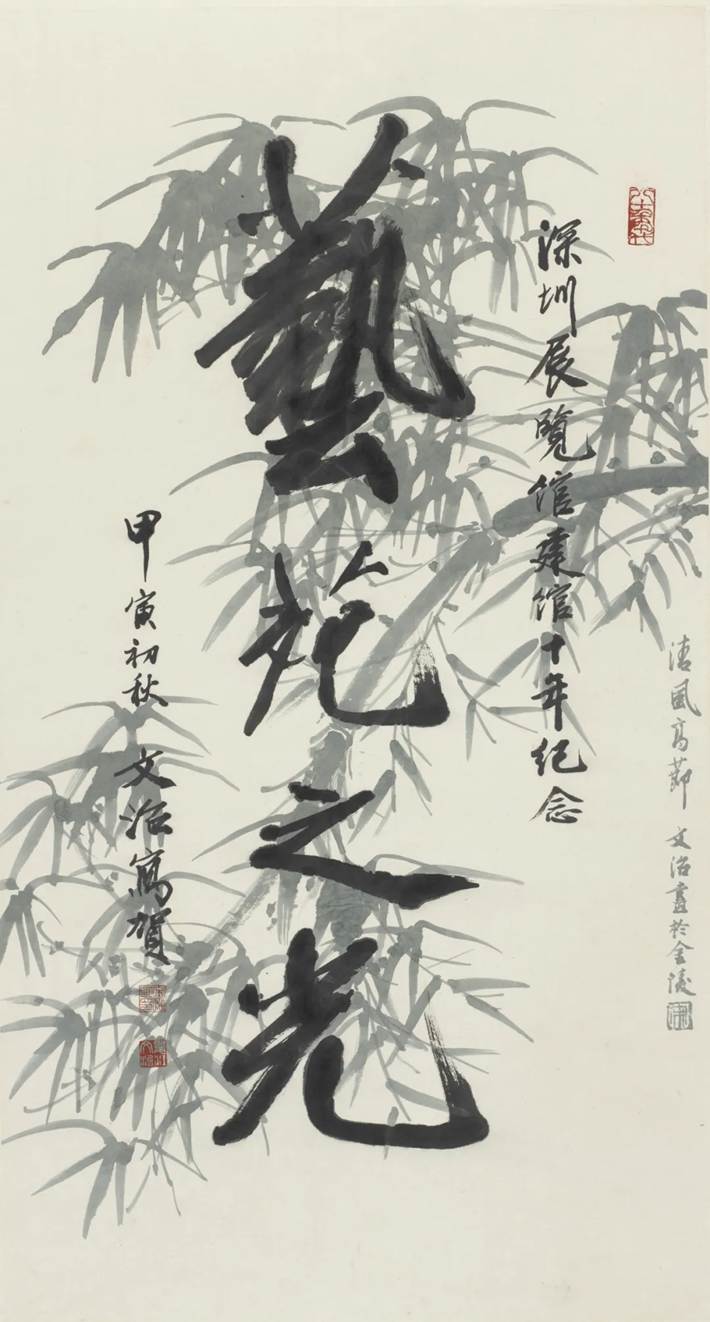 清風高節 文治畫於金陵
八十年代
深圳展覽館建館十年紀念
藝苑之光
甲寅初秋 文治寫賀